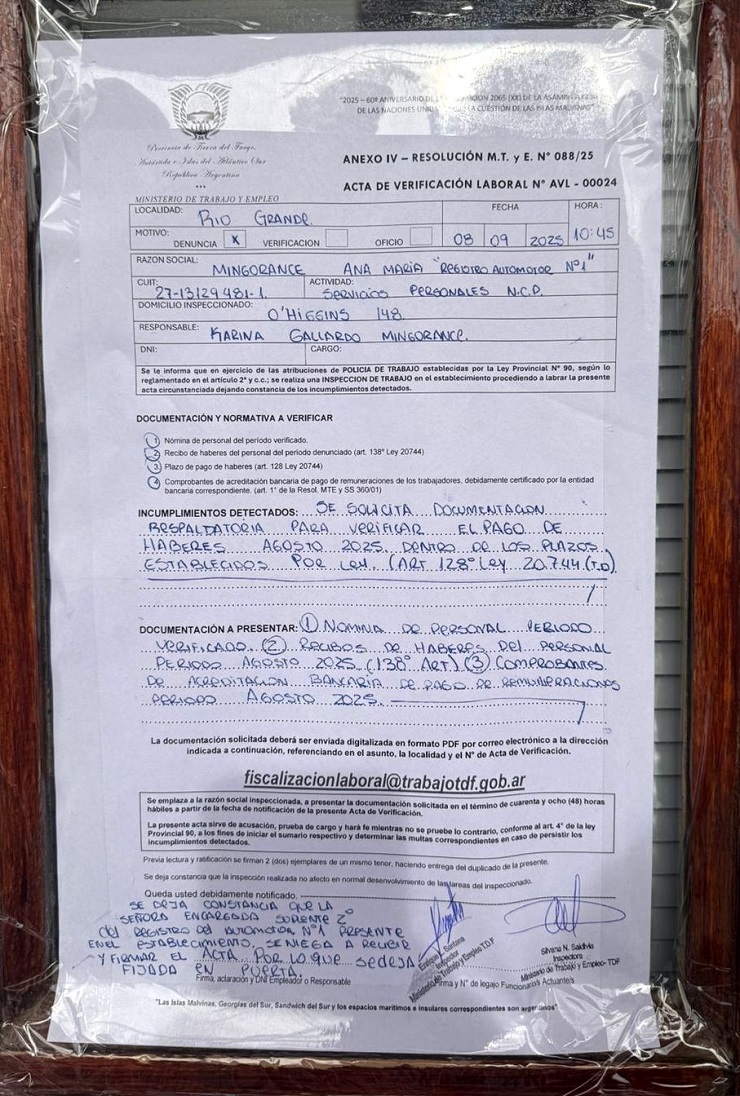 "2025 – 60º ANIVERSARIO DE LA RESOLUCION 2065 (XX) DE LA ASAMBLEA
DE LAS NACIONES UNIDAS LA CUESTIÓN DE LAS ISLAS MALVINAS"
Provincia de Tierra del Fuego,
Antártida e Islas del Atlántico Sur
República Argentina
***
MINISTERIO DE TRABAJO Y EMPLEO
ANEXO IV – RESOLUCIÓN M.T. y E. N° 088/25
ACTA DE VERIFICACIÓN LABORAL N° AVL - 00024
LOCALIDAD: RIO GRANDE.
FECHA
HORA:
MOTIVO: DENUNCIA X VERIFICACION OFICIO 08 09 2025 10:45
RAZON SOCIAL: MINGORANCE ANA MARIA "REGISTRO AUTOMOTOR Nº1"
CUIT: 27-13129481-1. ACTIVIDAD: SERVICIOS PERSONALES N.C.P.
DOMICILIO INSPECCIONADO: O'HIGGINS 148
RESPONSABLE: KARINA GALLARDO MINGORANCE.
DNI: CARGO:
Se le informa que en ejercicio de las atribuciones de POLICIA DE TRABAJO establecidas por la Ley Provincial N° 90, según lo
reglamentado en el artículo 2° y c.c.; se realiza una INSPECCION DE TRABAJO en el establecimiento procediendo a labrar la presente
acta circunstanciada dejando constancia de los incumplimientos detectados.
DOCUMENTACIÓN Y NORMATIVA A VERIFICAR
1 Nómina de personal del período verificado.
2 Recibo de haberes del personal del período denunciado (art. 138° Ley 20744)
3 Plazo de pago de haberes (art. 128 Ley 20744)
4 Comprobantes de acreditación bancaria de pago de remuneraciones de los trabajadores, debidamente certificado por la entidad
bancaria correspondiente. (art. 1° de la Resol. MTE y SS 360/01)
INCUMPLIMIENTOS DETECTADOS: SE SOLICITA DOCUMENTACION
RESPALDATORIA PARA VERIFICAR EL PAGO DE
HABERES AGOSTO 2025 DENTRO DE LOS PLAZOS
ESTABLECIDOS POR LEY. (ART. 128º LEY 20.744 (T.O)
DOCUMENTACIÓN A PRESENTAR: 1 NOMINA DE PERSONAL PERIODO
VERIFICADO. 2 RECIBOS DE HABERES DEL PERSONAL
PERIODO AGOSTO 2025 (138º ART) 3 COMPROBANTES
DE ACREDITACION BANCARIA DE PAGO DE REMUNERACIONES
PERIODO AGOSTO 2025.
La documentación solicitada deberá ser enviada digitalizada en formato PDF por correo electrónico a la dirección
indicada a continuación, referenciando en el asunto, la localidad y el N° de Acta de Verificación.
fiscalizacionlaboral@trabajotdf.gob.ar
Se emplaza a la razón social inspeccionada, a presentar la documentación solicitada en el término de cuarenta y ocho (48) horas
hábiles a partir de la fecha de notificación de la presente Acta de Verificación.
La presente acta sirve de acusación, prueba de cargo y hará fe mientras no se pruebe lo contrario, conforme al art. 4° de la ley
Provincial 90, a los fines de iniciar el sumario respectivo y determinar las multas correspondientes en caso de persistir los
incumplimientos detectados.
Previa lectura y ratificación se firman 2 (dos) ejemplares de un mismo tenor, haciendo entrega del duplicado de la presente.
Se deja constancia que la inspección realizada no afecto en normal desenvolvimiento de las tareas del inspeccionado.
Queda usted debidamente notificado.
SE DEJA CONSTANCIA QUE LA
SEÑORA ENCARGADA SUPLENTE 2º
del REGISTRO DEL AUTOMOTOR Nº1 PRESENTE
EN EL ESTABLECIMIENTO, SE NIEGA A RECIBIR
Y FIRMAR EL ACTA POR LO QUE SE DEJA
FIJADA EN PUERTA.
Firma, aclaración y DNI Empleador o Responsable
Santana
Inspector
Ministerio de Trabajo y Empleo T.D.F
Silvana N. Saldivia
Inspectora
Ministerio de Trabajo y Empleo- TDF
Firma y N° de legajo Funcionario Actuante/s
"Las Islas Malvinas, Georgias del Sur, Sandwich del Sur y los espacios marítimos e insulares correspondientes son argentinos"